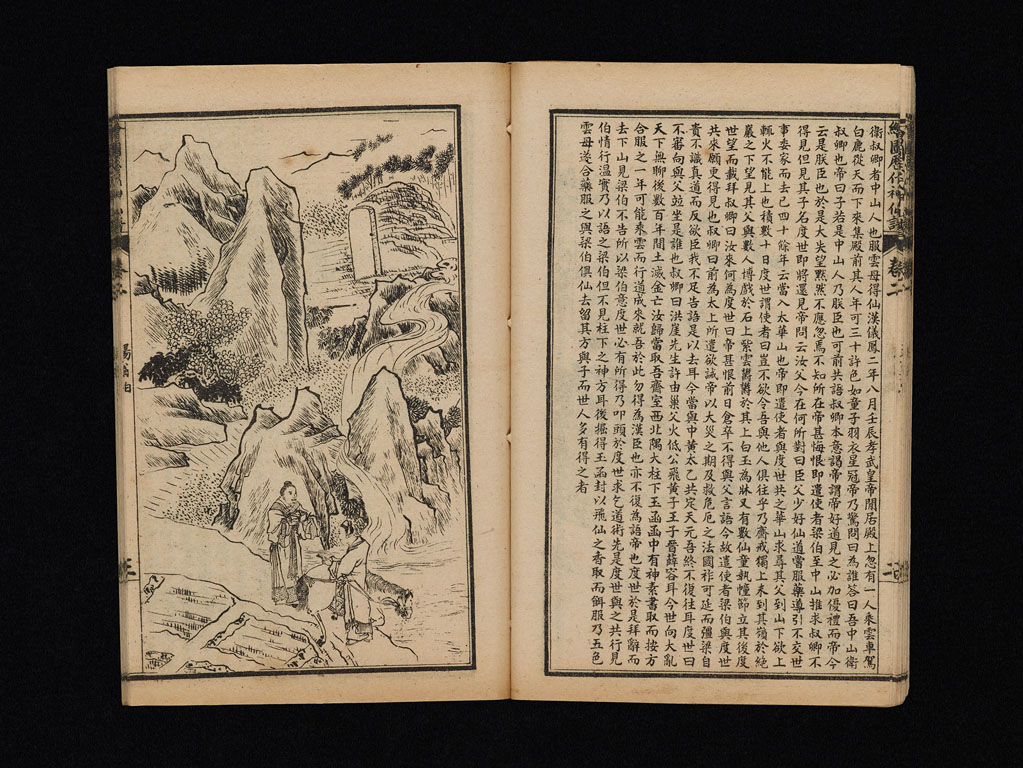 繪圖歷代神仙傳 卷二
衛叔卿者中山人也服雲母得仙漢儀鳳二年八月壬辰孝武皇帝閒居殿上忽有一人乘雲車駕
白鹿從天而下來集殿前其人年可三十許色如童子羽衣星冠帝乃驚問曰為誰答曰吾中山衛
叔卿也帝曰子若是中山人乃朕臣也可前共語叔卿本意謁帝謂帝好道見之必加優禮而帝今
云是朕臣也於是大失望黙然不應忽焉不知所在帝甚悔恨即遣使者梁伯至中山推求叔卿不
得見但見其子名度世即將還見帝問云汝父今在何所對曰臣父少好仙道嘗服藥導引不交世
事委家而去已四十餘年云當入太華山也帝即遣使者與度世共之華山求尋其父到山下欲上
輒火不能上也積數十日度世謂使者曰豈不欲令吾與他人俱往乎乃齋戒獨上未到其嶺於絶
巖之下望見其父與數人博戲於石上紫雲鬱鬱於其上白玉為牀又有數仙童執幢節立其後度
世望而載拜叔卿曰汝來何為度世曰帝甚恨前日倉卒不得與父言語今故遣使者梁伯與度世
共來願更得見也叔卿曰前為太上所遣欲誡帝以大災之期及救危厄之法國祚可延而彊梁自
貴不識真道而反欲臣我不足告語是以去耳今當與中黃太乙共定天元吾終不復往耳度世曰
不審向與父並坐是誰也叔卿曰洪崖先生許由巢父火低公飛黃子王子晉薛容耳今世向大亂
天下無聊後數百年間土滅金亡汝歸當取吾齋室西北隅大柱下玉函函中有神素書取而按方
合服之一年可能乘雲而行道成來就吾於此勿得為漢臣也亦不復為語帝也度世於是拜辭而
去下山見梁伯不告所以梁伯意度世必有所得乃叩頭於度世求乞道術先是度世與之共行見
伯情行温實乃以語之梁伯但不見柱下之神方耳後掘得玉函封以飛仙之香取而餌服乃五色
雲母遂合藥服之與梁伯俱仙去留其方與子而世人多有得之者
三